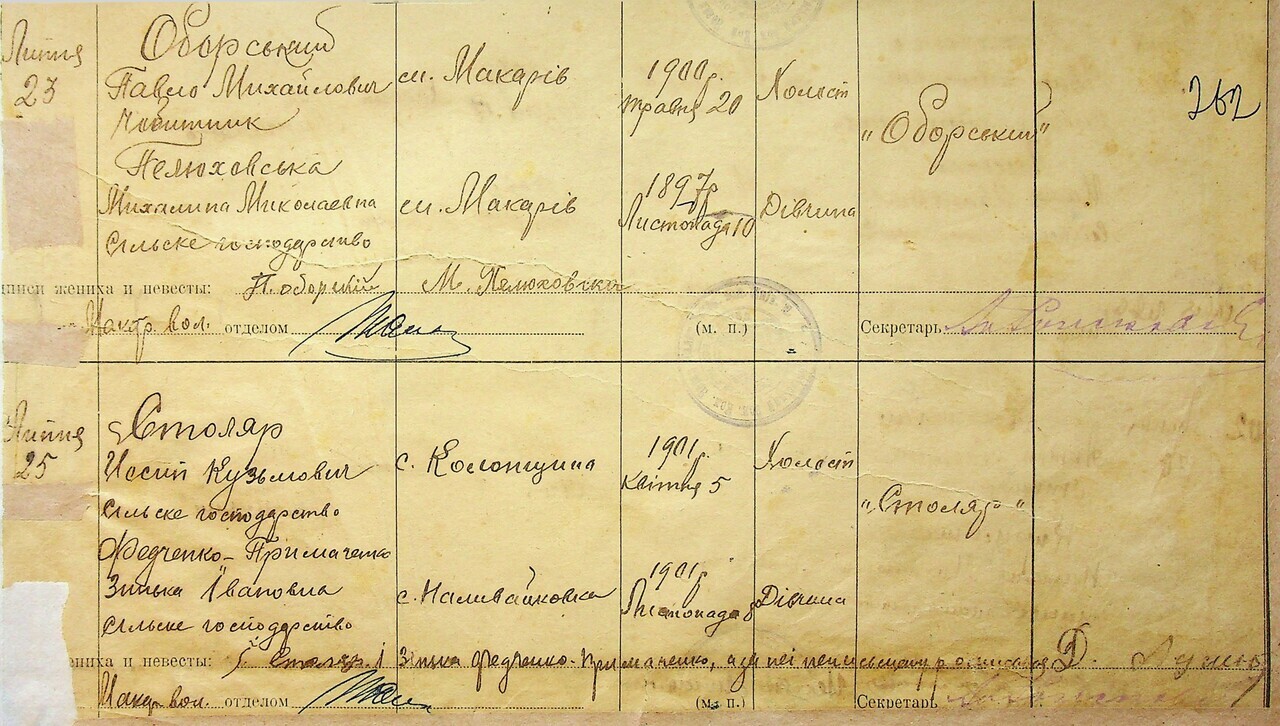 Липня
23
Оборський
Павло Михайлович
Чобитник
м. Макарів
1900 р.
травня 20
Холост
"Оборський"
262
Пелюховська
Михалина Миколаевна
Сільске господарство
м. Макарів
1897 р
Листопада 10
Дівчина
жениха и невесты: П. оборский М. Пелюховска
Макар. вол. отделом
(м. п.)
Секретарь
Липня
25
Столяр
Йосип Кузьмович
Сільске господарство
с. Колонщина
1901 р.
квітня 5
Холост
"Столяр"
Федченко-Примаченко
Зінька Івановна
Сільске господарство
с. Наливайковка
1901 р
Листопада 8
Дівчина
жениха и невесты: Столяр. Зінька Федченко-Примаченко, а за неї неписьменну росписався Д.
Макар. вол. отделом
(м. п.)
Секретарь